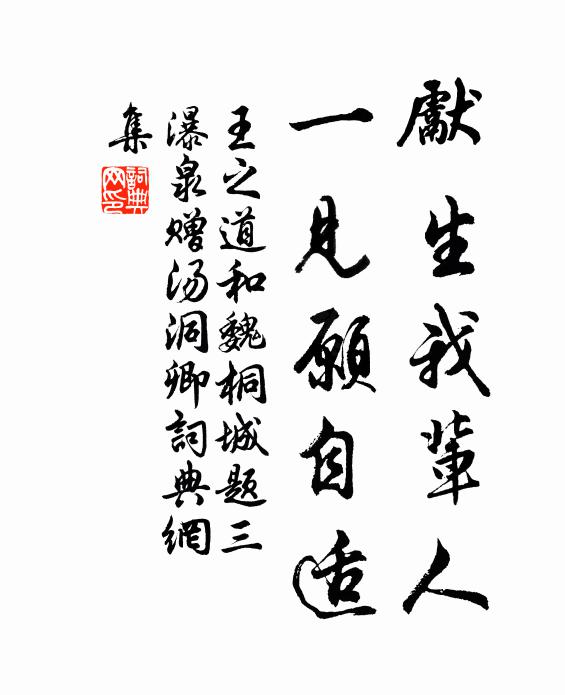 獻生我輩人
一見願自适
王之道和魏桐城题三
瀑泉赠汤洞卿詞典網
集
詞典
网印